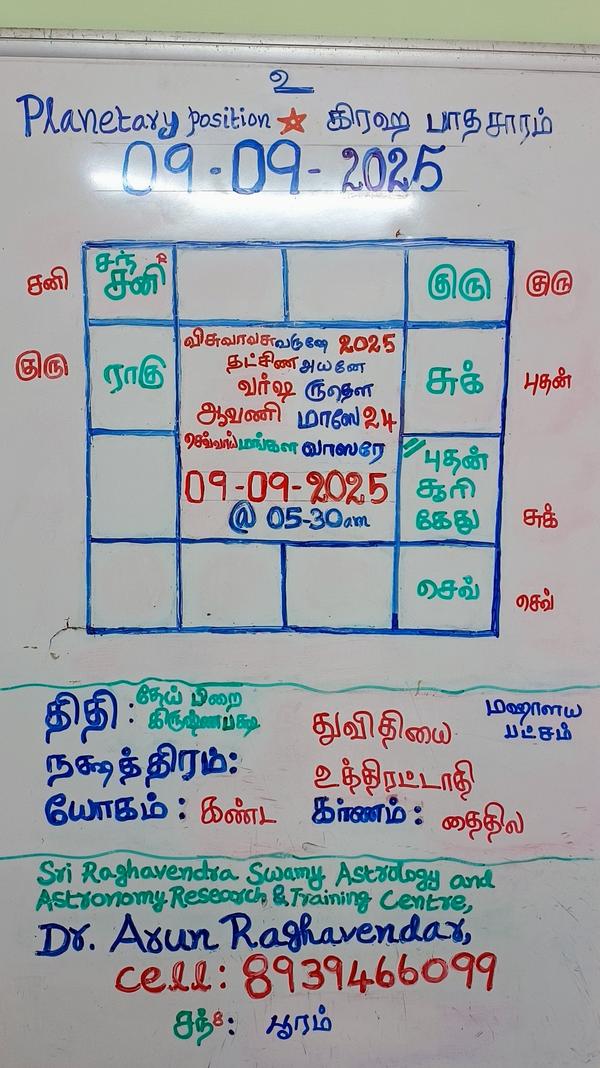 உ
Planetary position ☆ கிரஹ பாதசாரம்
09-09-2025
சனி
சந்
சனி R
குரு
குரு
குரு
ராகு
சுக்
புதன்
விசுவாவசுவருஷே 2025
தட்சிண அயனே
வர்ஷ ருதௌ
ஆவணி மாஸே 24
செவ்வாய் மங்கள வாஸரே
09-09-2025
@ 05-30am
புதன்
சூரி
கேது
சுக்
செவ்
செவ்
திதி : தேய் பிறை
கிருஷ்ணபக்ஷ
துவிதியை
மஹாளய
பட்சம்
நக்ஷத்திரம்: உத்திரட்டாதி
யோகம் : கண்ட கர்ணம் : தைதில
Sri Raghavendra Swamy Astrology and
Astronomy Research & Training Centre,
Dr. Arun Raghavendar,
cell: 8939466099
சந்8: பூரம்